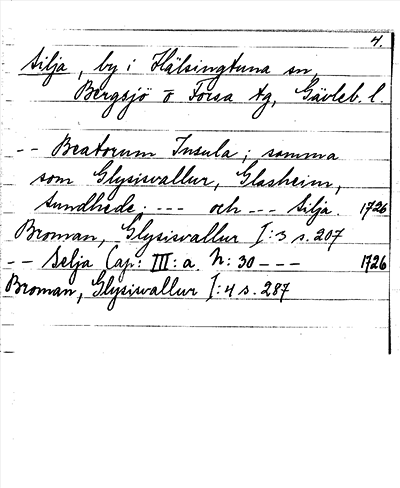 4.
Silja, by i Hälsingtuna sn,
Bergsjö o Forsa tg, Gävleb. l.
-- Beatorum Insula; samma
som Glysisvallur, Glasheim,
Sundhede. --- och -- Silja. 1726
Broman, Glysisvallur I:3 s. 207
-- Selja Cap: III: a. N: 30 --- 1726
Broman, Glysisvallur I:4 s. 287